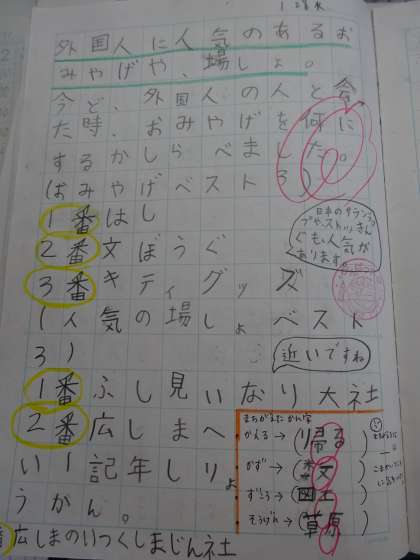 外国人に人気のあるお
みやげや、場しょ。
今ど、外国人の人と会
た時、おみやげを何に
するかしらべました。
(おみやげベスト3)
1番はし
2番文ぼうぐ
3番キティグッズ
(人気の場しょベスト
3)
1番ふし見いなり大社
2番広しまへ
い(記年しりょ
うかん。
広しまのいつくしまじん社
日本の
人気が
あります
近いですね
まちがえたかん字
かえる→(帰る)
かず→(数)
ずこう→(図工)
そうげん→(草原)